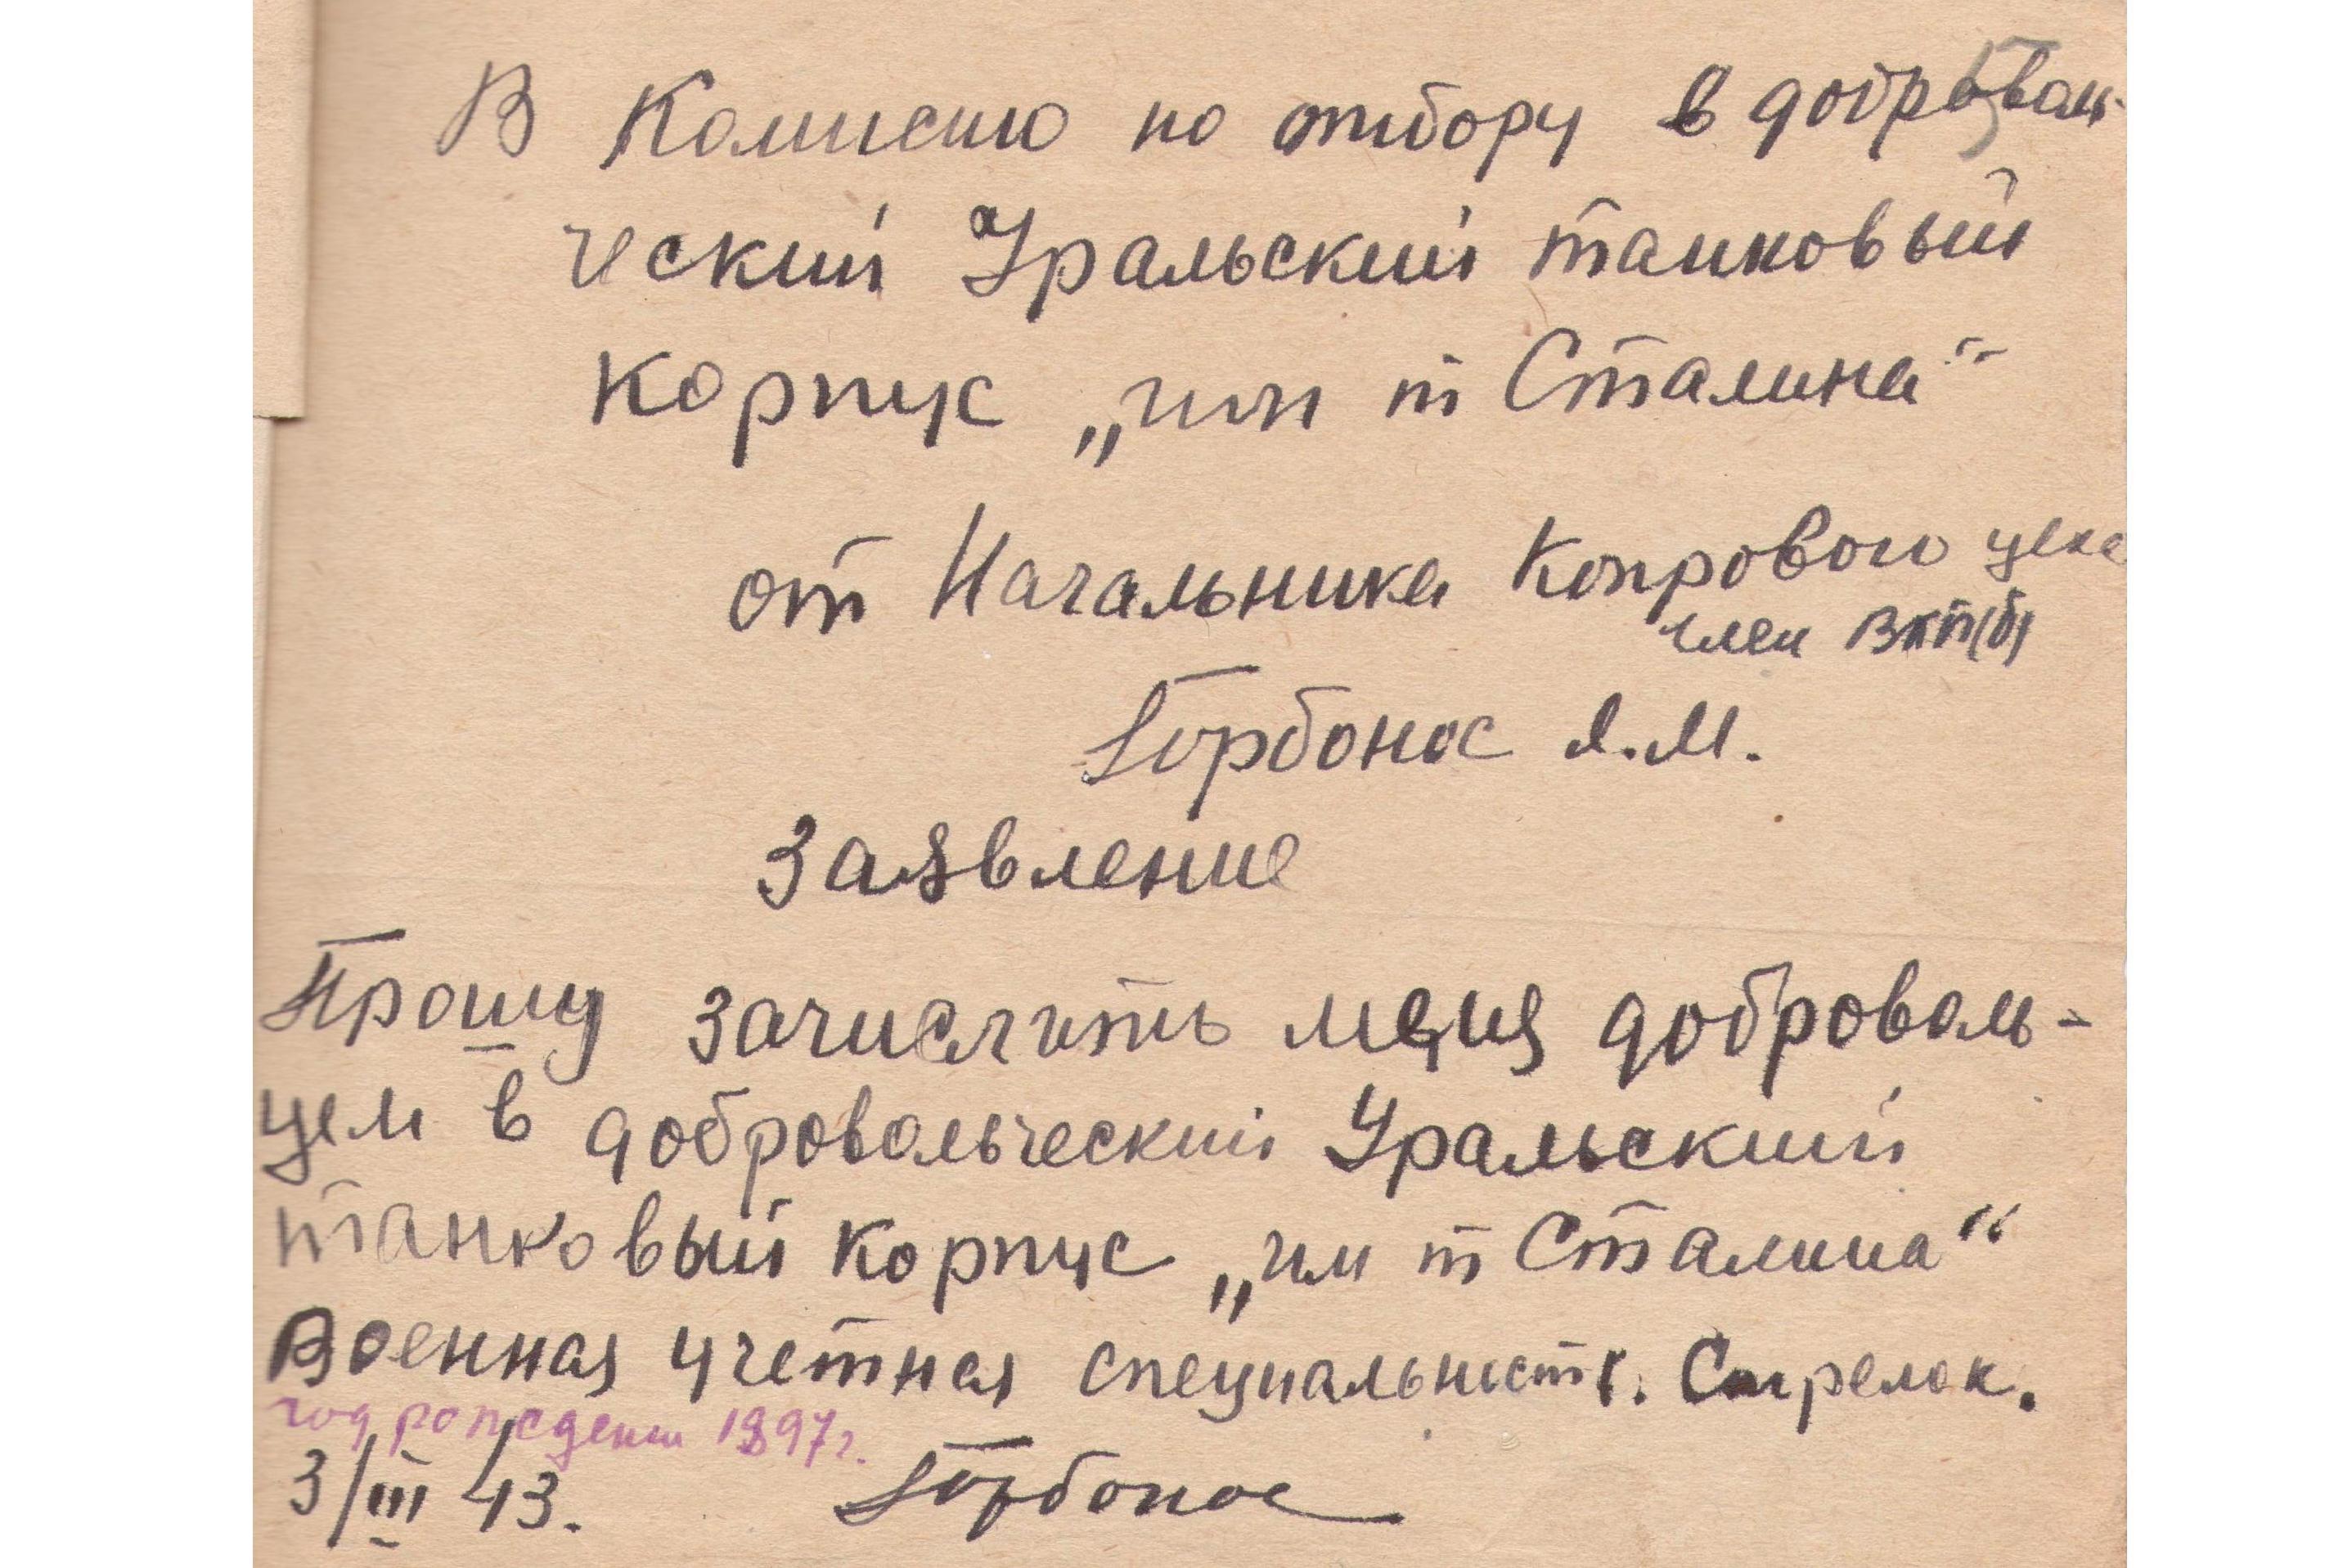 В Комисию по отбору в доброваль-
ческий Уральский танковый
корпус „им т Сталина“
от Начальника Копрового цеха
член ВКП(б)
Горбонос Я.М.
Заявление
Прошу зачислить меня доброволь-
цем в добровольческий Уральский
танковый корпус „им т Сталина“
Военная учетная специальность. Стрелок.
год рождения 1897г.
3/III 43. Горбонос